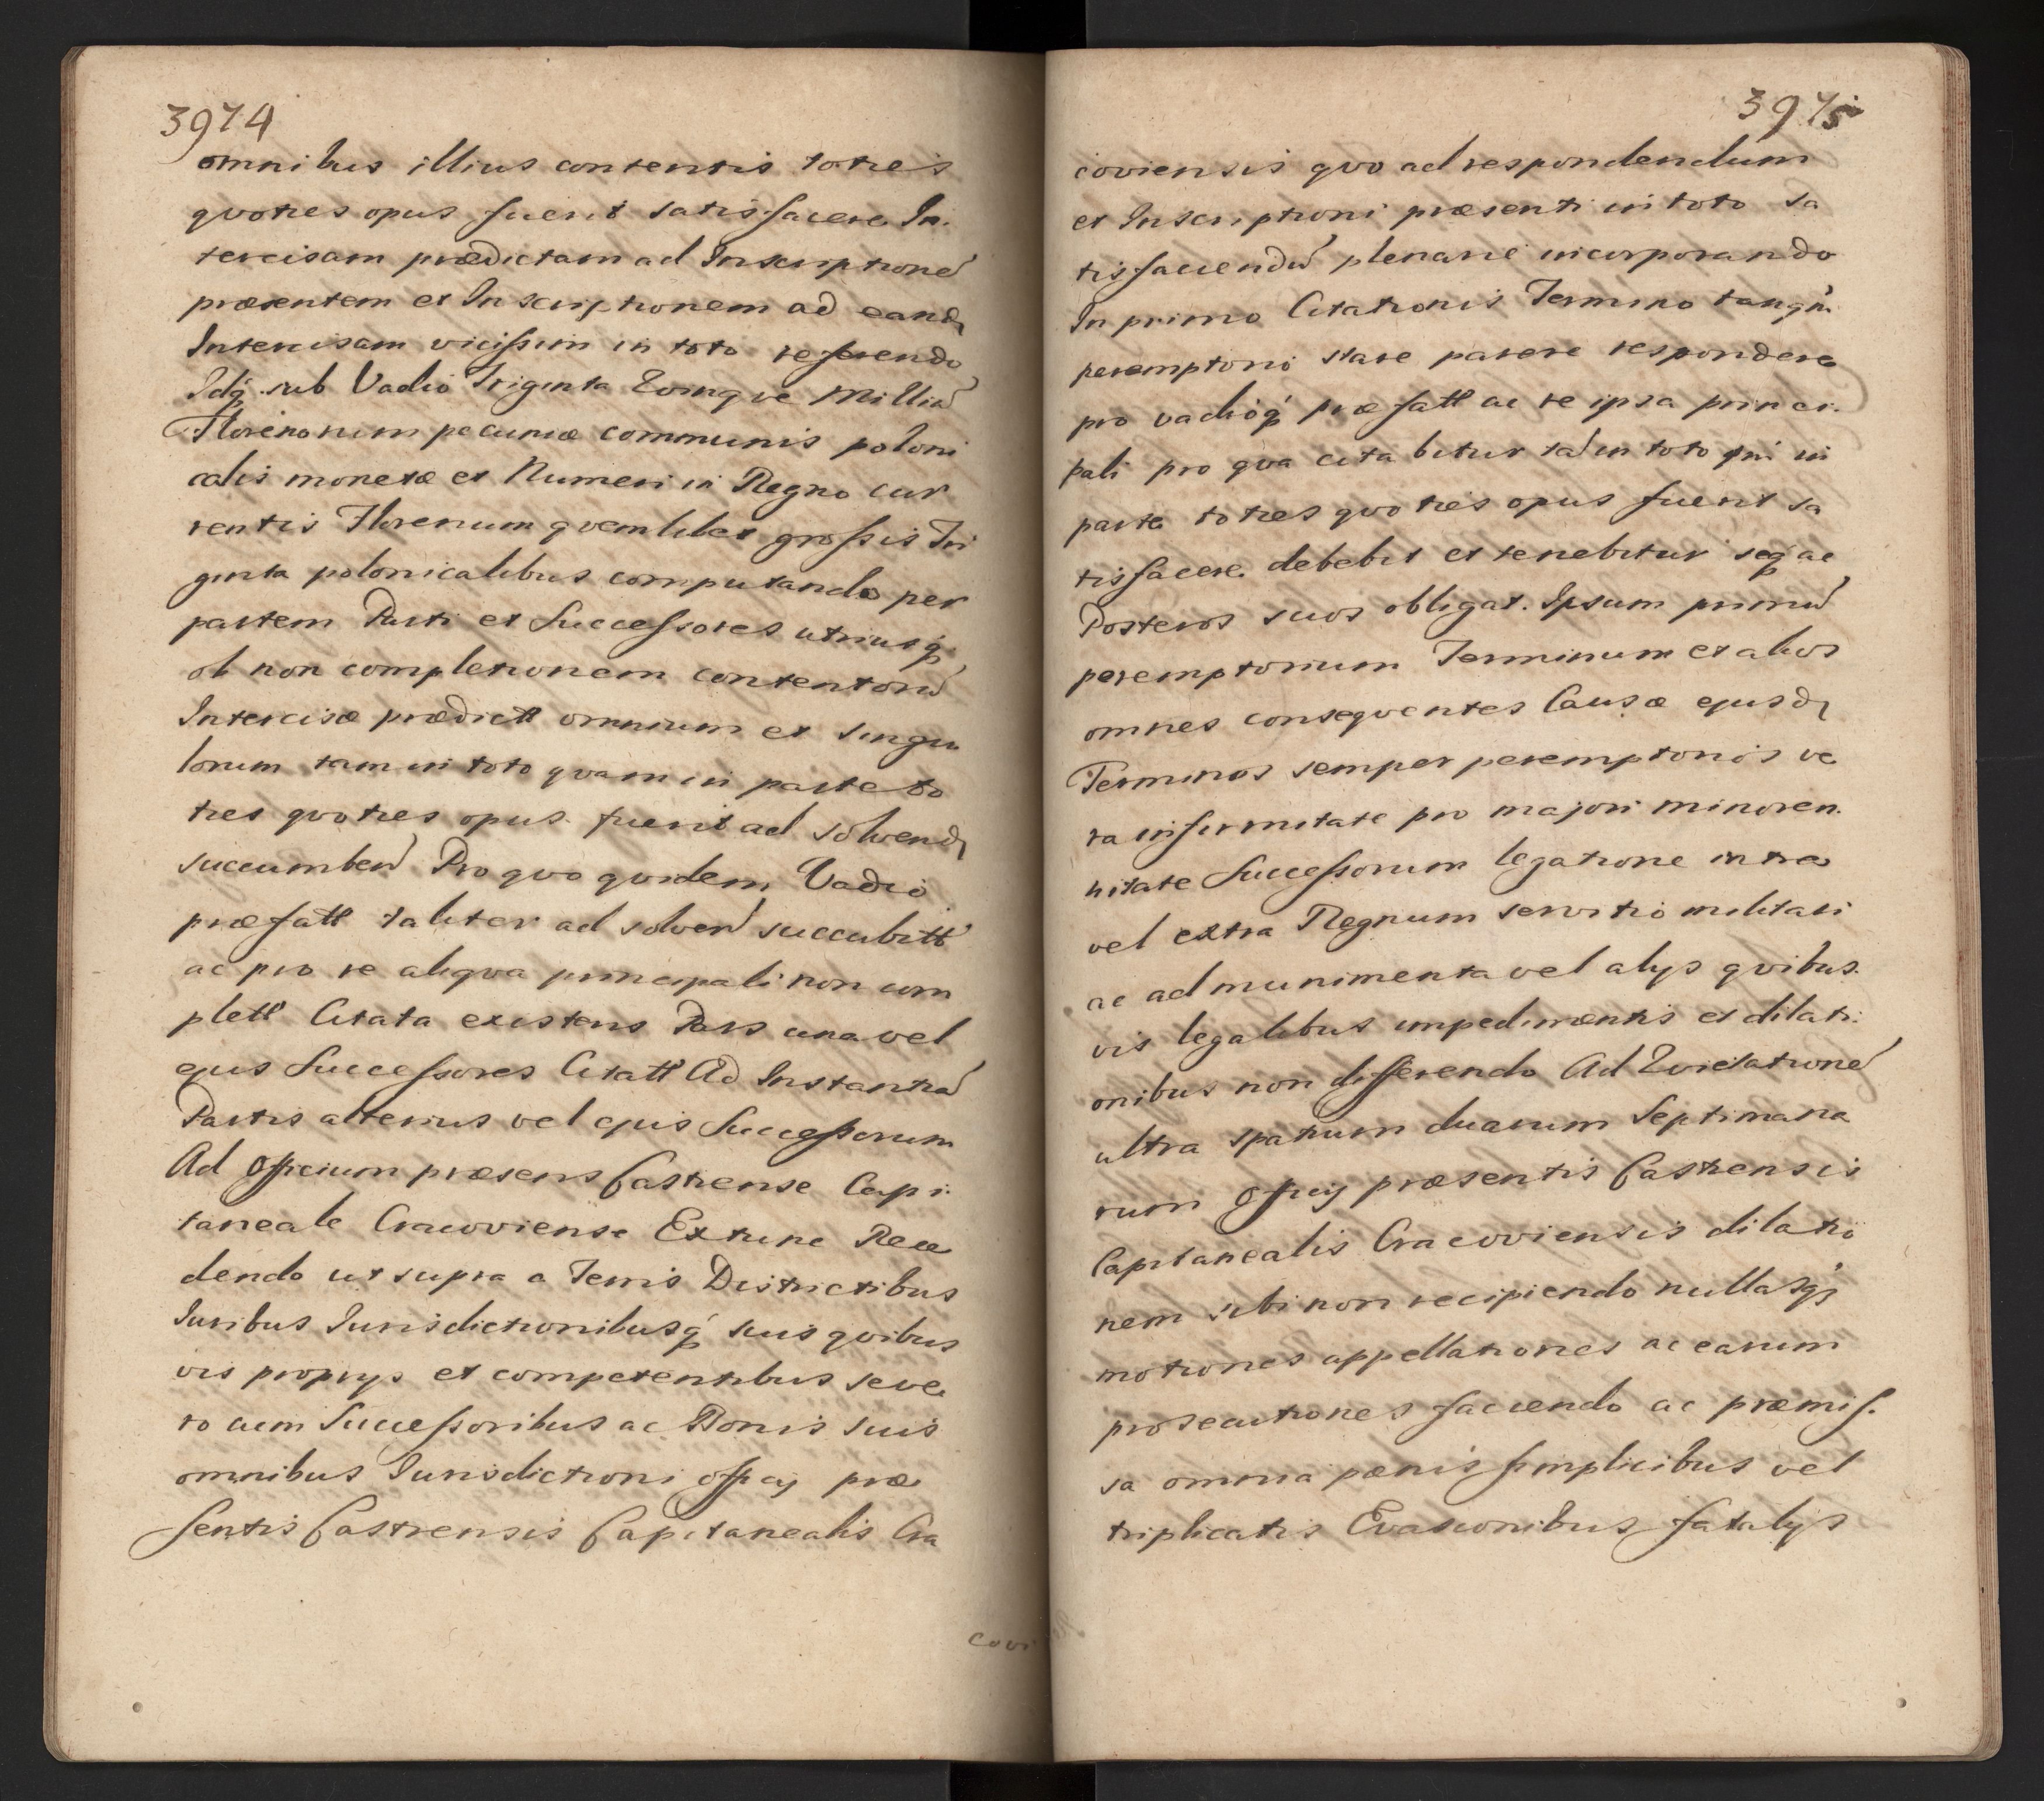 3974
omnibus illius contentis toties
qvoties opus fuerit satisfacere In-
tercisam prædictam ad Inscriptione
præsentem et Inscriptionem ad eand
Intercisam vicissim in toto referendo
Idq sub Vadio Triginta Qvinqve Milliu
Florenorum pecuniæ communis poloni
calis monetæ et Numeri in Regno cur
rentis Florenum qvemlibet grossis Tri
ginta polonicalibus computando per
partem Parti et Successores utriusq
ob non completionem contentoru
Intercisæ prædictt omnium et singu
lorum tam in toto qvam in parte to
ties qvoties opus fuerit ad solvend
succumben Pro qvo qvidem Vadio
præfatt taliter ad solven succubitt
ac pro re aliqva principali non com
plett Citata existens Pars una vel
ejus Successores Citatt Ad Instantia
Partis alterius vel ejus Successorum
Ad Officium præsens Castrense Capi-
taneale Cracoviense Extunc Rece
dendo ut supra a Terris Districtibus
Iuribus Iurisdictionibusq suis qvibus
vis proprys et competentibus seve
ro cum Successoribus ac Bonis suis
omnibus Iurisdictioni Officij præ
sentis Castrensis Capitanealis Cra
covi
3975
coviensis qvo ad respondendum
et Inscriptioni præsenti in toto sa
tisfaciendu plenarie incorporando
In primo Citationis Termino tanqm
peremptorio stare parere respondere
pro vadioq præfatt ac re ipsa princi-
pali pro qva citabitur ta in toto qm in
parte toties qvoties opus fuerit sa
tisfacere debebit et tenebitur seq ac
Posteros suos obligat. Ipsum primu
peremptorium Terminum et alios
omnes conseqventes Causæ ejusd
Terminos semper peremptorios ve
ra infirmitate pro majori minoren-
nitate Successorum legatione intra
vel extra Regnum servitio militari
ac ad munimenta vel alys qvibus-
vis legalibus impedimentis et dilati-
onibus non differendo Ad Evictatione
ultra spatium duarum Septimana
rum Officij præsentis Castrensis
Capitanealis Cracoviensis dilatio
nem sibi non recipiendo nullasq
motiones appellationes ac earum
prosecutiones faciendo ac præmis-
sa omnia pænis simplicibus vel
triplicatis Evasionibus fatalys